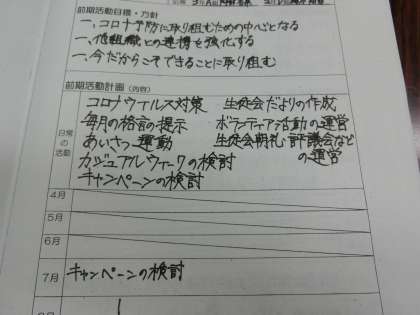 前期活動目標・方針
一、コロナ予防に取り組むための中心となる
一、他組織との連携を強化する
一、今だからこそできることに取り組む
前期活動計画(内容)
日常の活動
コロナウイルス対策 生徒会だよりの作成
毎月の格言の提示 ボランティア活動の運営
あいさつ運動 生徒会朝礼・評議会など
カジュアルウィークの検討 の運営
キャンペーンの検討
4月
5月
6月
7月 キャンペーンの検討